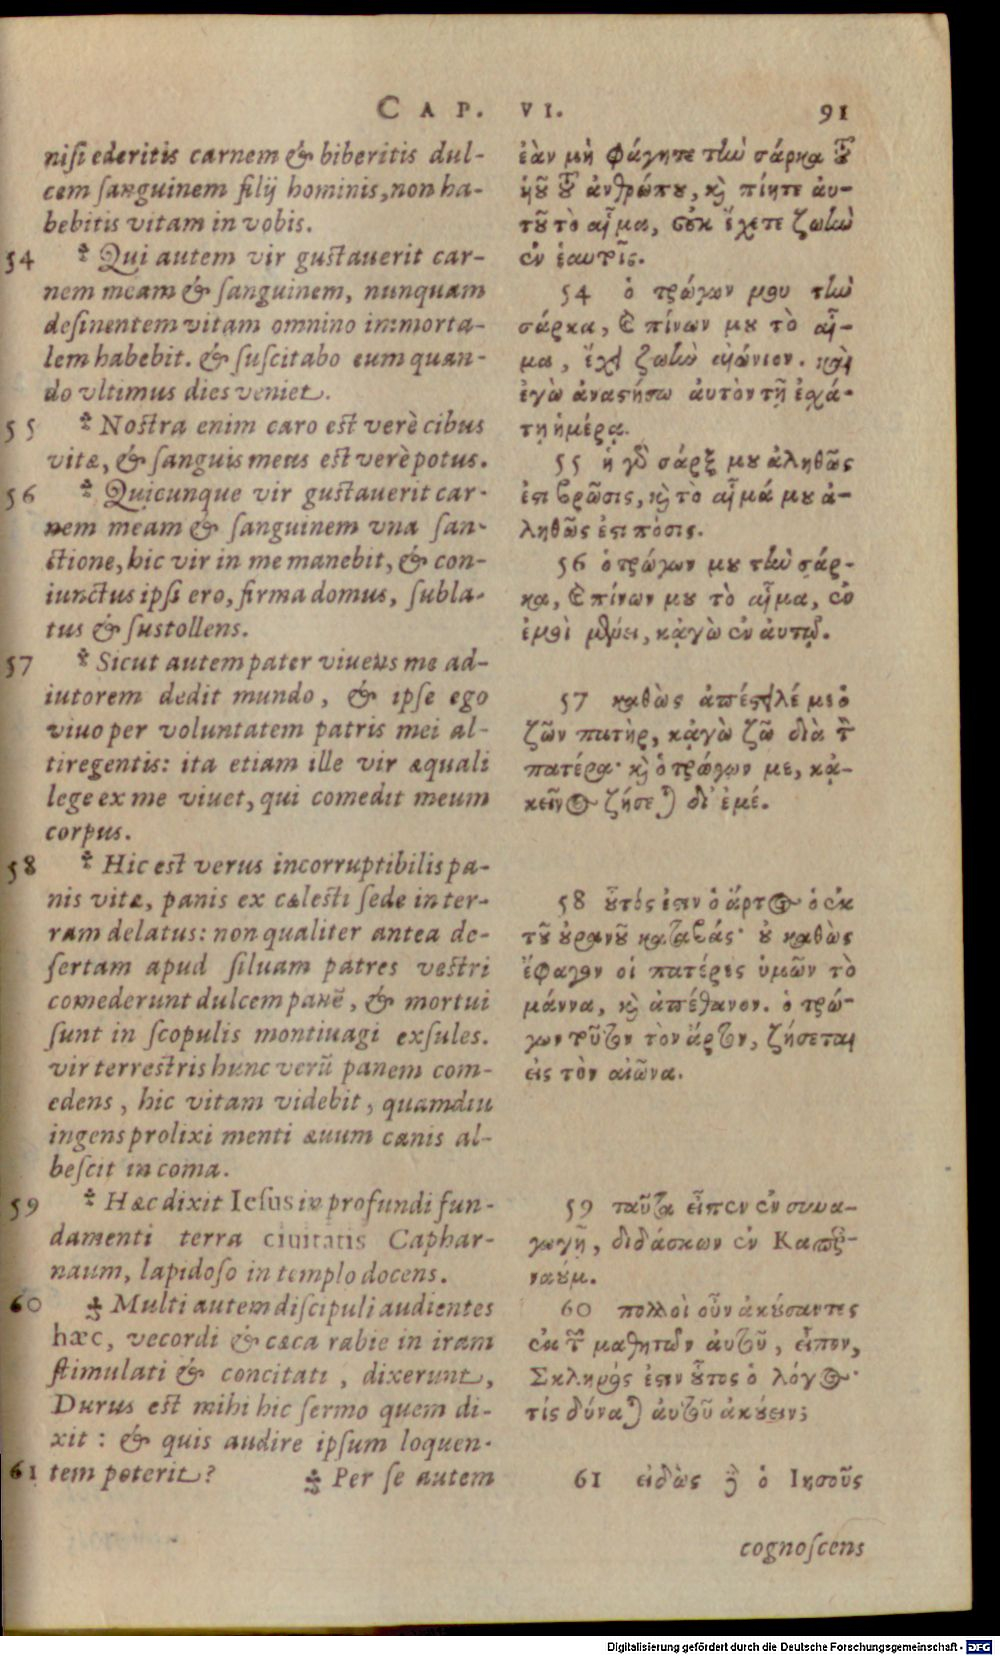 CAP. VI. 91
niſi ederitis carnem & biberitis dul-
cem ſanguinem filij hominis, non ha-
bebitis vitam in vobis.
54 Qui autem vir guſtauerit car-
nem meam & ſanguinem, nunquam
deſinentem vitam omnino immorta-
lem habebit. & ſuſcitabo eum quan-
do vltimus dies veniet.
55 Noſtra enim caro eſt verè cibus
vitæ, & ſanguis meus eſt verè potus.
56 Quicunque vir guſtauerit car-
nem meam & ſanguinem vna ſan-
ctione, hic vir in me manebit, & con-
iunctus ipſi ero, firma domus, ſubla-
tus & ſustollens.
57 Sicut autem pater viuens me ad-
iutorem dedit mundo, & ipſe ego
viuo per voluntatem patris mei al-
tiregentis: ita etiam ille vir æquali
lege ex me viuet, qui comedit meum
corpus.
58 Hic eſt verus incorruptibilis pa-
nis vitæ, panis ex cæleſti ſede in ter-
ram delatus: non qualiter antea de-
ſertam apud ſiluam patres veſtri
comederunt dulcem panē, & mortui
ſunt in ſcopulis montiuagi exſules.
vir terreſtris hunc verū panem com-
edens, hic vitam videbit, quamdiu
ingens prolixi menti æuum canis al-
beſcit in coma.
59 Hæc dixit Ieſus in profundi fun-
damenti terra ciuitatis Caphar-
naum, lapidoſo in templo docens.
60 Multi autem diſcipuli audientes
hæc, vecordi & cæca rabie in iram
ſtimulati & concitati, dixerunt,
Durus eſt mihi hic ſermo quem di-
xit: & quis audire ipſum loquen-
61 tem poterit? Per ſe autem
ἐὰν μὴ φάγητε τὴν σάρκα τοῦ
ἡοῦ τοῦ ἀνθρώπου, καὶ πίητε αὐ-
τοῦ τὸ αἷμα, οὐκ ἔχετε ζωὴν
ἐν ἑαυτοῖς.
54 ὁ τρώγων μου τὴν
σάρκα, καὶ πίνων μου τὸ αἷ-
μα, ἔχει ζωὴν αἰώνιον. καὶ
ἐγὼ ἀναστήσω αὐτὸν τῇ ἐσχά-
τῃ ἡμέρᾳ.
55 ἡ γὰρ σάρξ μου ἀληθῶς
ἐστι βρῶσις, καὶ τὸ αἷμά μου ἀ-
ληθῶς ἐστι πόσις.
56 ὁ τρώγων μου τὴν σάρ-
κα, καὶ πίνων μου τὸ αἷμα, ἐν
ἐμοὶ μένει, κἀγὼ ἐν αὐτῷ.
57 καθὼς ἀπέστειλέ με ὁ
ζῶν πατὴρ, κἀγὼ ζῶ διὰ τὸν
πατέρα· καὶ ὁ τρώγων με, κἀ-
κεῖνος ζήσεται δι' ἐμέ.
58 οὗτός ἐστιν ὁ ἄρτος ὁ ἐκ
τοῦ οὐρανοῦ καταβάς· οὐ καθὼς
ἔφαγον οἱ πατέρες ὑμῶν τὸ
μάννα, καὶ ἀπέθανον. ὁ τρώ-
γων τοῦτον τὸν ἄρτον, ζήσεται
εἰς τὸν αἰῶνα.
59 ταῦτα εἶπεν ἐν συνα-
γωγῇ, διδάσκων ἐν Καπερ-
ναύμ.
60 πολλοὶ οὖν ἀκούσαντες
ἐκ τῶν μαθητῶν αὐτοῦ, εἶπον,
Σκληρός ἐστιν οὗτος ὁ λόγος·
τίς δύναται αὐτοῦ ἀκούειν;
61 εἰδὼς δὲ ὁ Ιησοῦς
cognoſcens
Digitalisierung gefördert durch die Deutsche Forschungsgemeinschaft - DFG